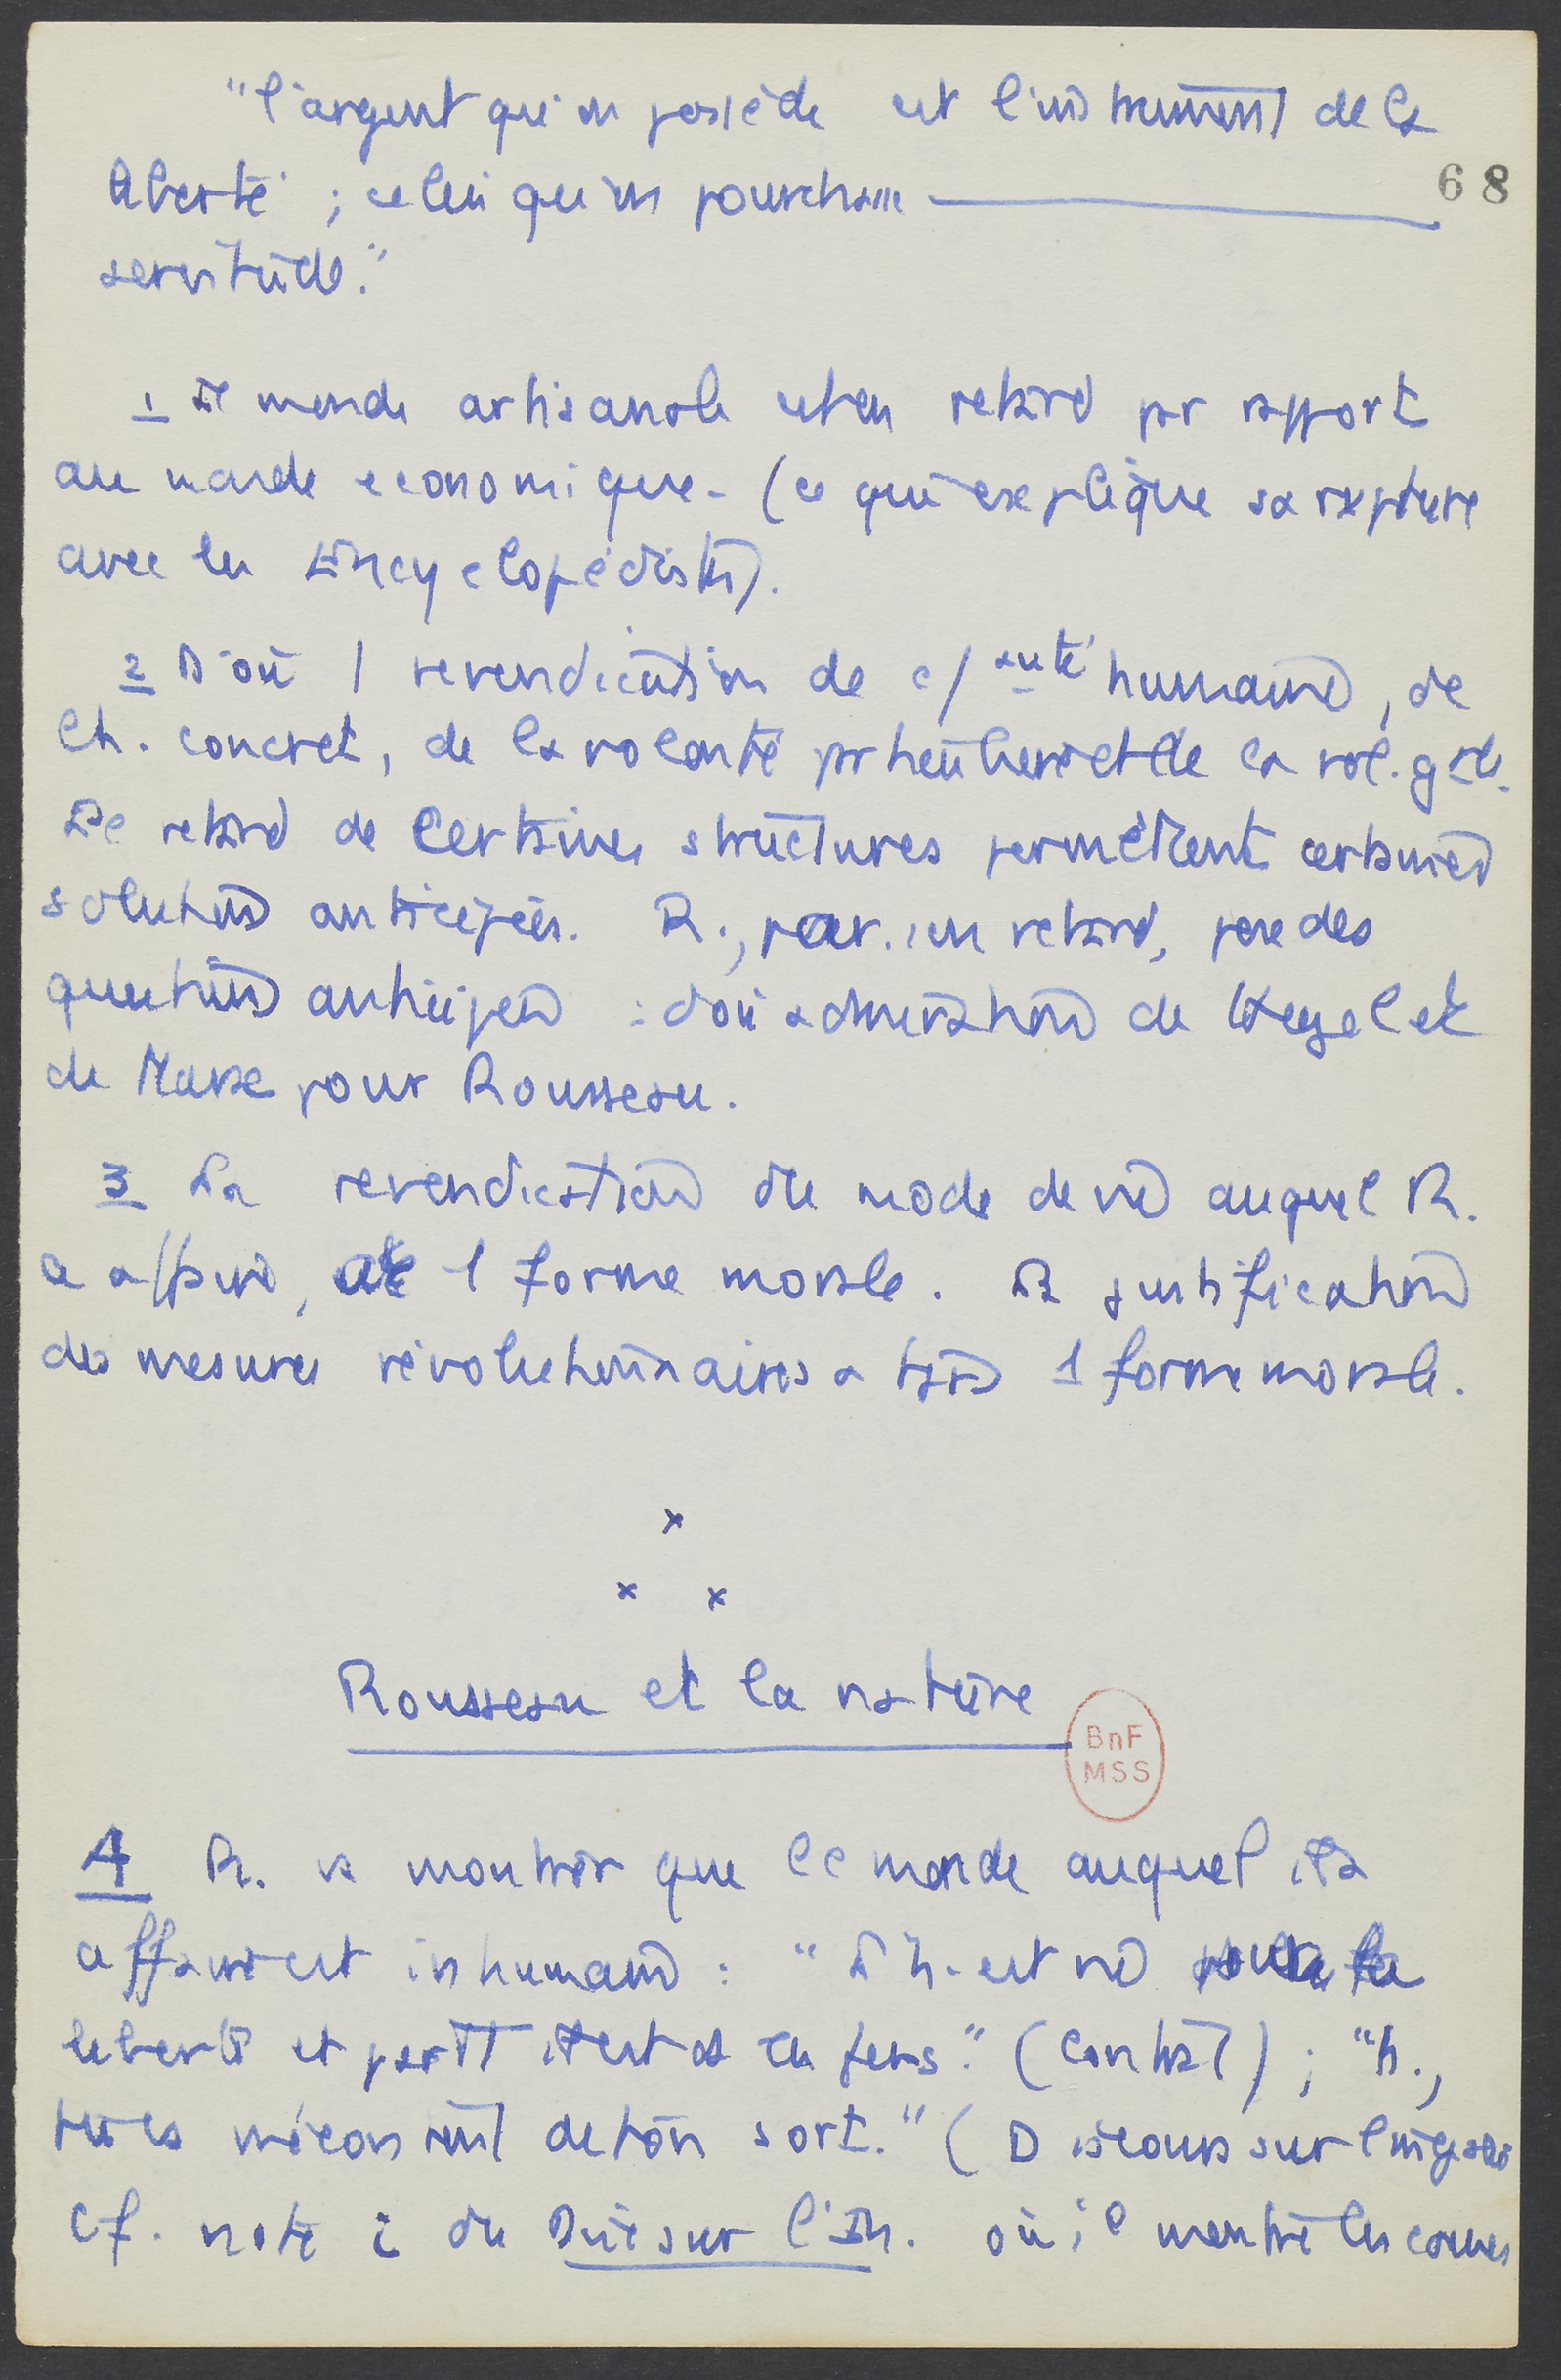 "l'argent qu'on possède est l'instrument de la
68
liberté ; celui qu'on pourchasse ————
servitude."
1 le monde artisanale est en retard par rapport
au monde economique. (ce qui explique sa rupture
avec les Encyclopédistes).
2 D'où 1 revendication de c/auté humaine, de
l'h. concret, de la volonté particulière et de la vol. gale.
Le retard de certaines structures permettent certaines
solutions anticipées. R., par son retard, pose des
questions anticipées : d'où admiration de Hegel et
de Marx pour Rousseau.
3 La revendication du mode de vie auquel R.
a affaire, a 1 forme morale. La justification
des mesures révolutionnaires a pris 1 forme morale.
x
x x
Rousseau et la nature
BnF
MSS
A R. va montrer que le monde auquel il a
affaire est inhumain : "L'h. est né la
liberté et partt il est en fers." (Contrat) ; "h.,
tu es mécontent de ton sort." (Discours sur l'inégalité
Cf. note i du Dis sur l'In. où il montre les causes